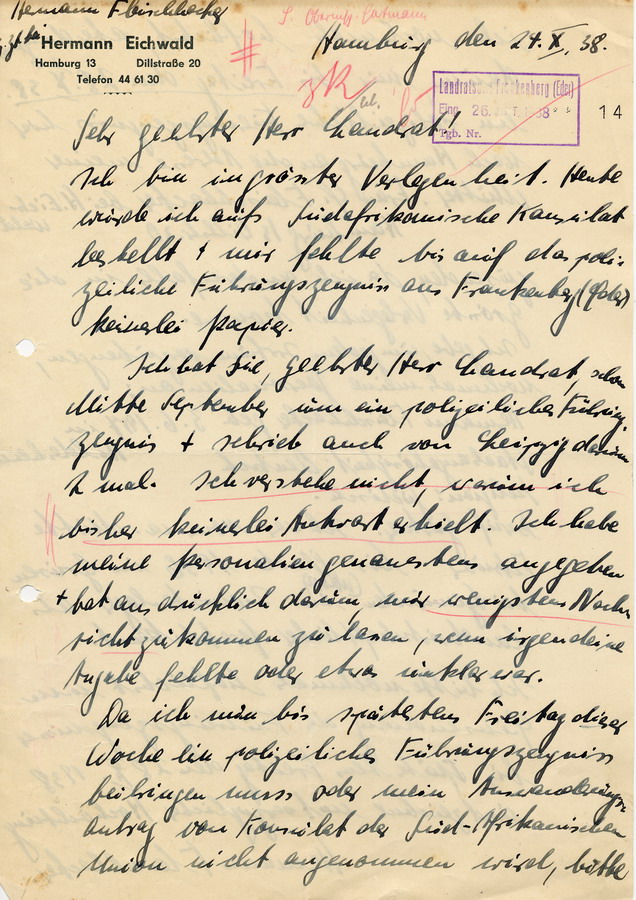 Hermann
z. Zt. bei
Hermann Eichwald
Hamburg 13 Dillstraße 20
Telefon 44 61 30
Hamburg den 24. X. 38.
Landratsamt Frankenberg (Eder)
Eing. 26. OKT. 1938
Tgb. Nr.
14
Sehr geehrter Herr Landrat!
Ich bin in grösster Verlegenheit. Heute
wurde ich aufs Südafrikanische Konsulat
bestellt + mir fehlte bis auf das poli-
zeiliche Führungszeugnis aus Frankenberg (Eder)
keinerlei Papier.
Ich bat Sie, geehrter Herr Landrat, schon
Mitte September um ein polizeiliches Führungs-
zeugnis + schrieb auch von Leipzig darum
2 mal. Ich verstehe nicht, warum ich
bisher keinerlei Antwort erhielt. Ich habe
meine Personalien genauestens angegeben
+ bat ausdrücklich darum, mir wenigstens Nach-
richt zukommen zu lassen, wenn irgendeine
Angabe fehlte oder etwas unklar war.
Da ich nun bis spätestens Freitag dieser
Woche ein polizeiliches Führungszeugniss
beibringen muss oder mein Auswanderungs-
antrag vom Konsulat der Süd-Afrikanischen
Union nicht angenommen wird, bitte